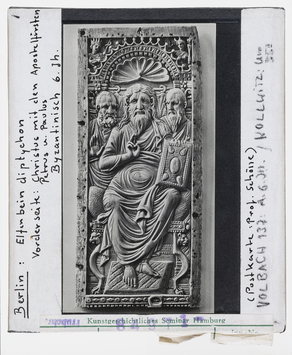 Berlin : Elfenbein diptychon
Vorderseite: Christus mit den Apostelfürsten
Petrus u. Paulus
Byzantinisch 6. Jh.
(Postkarte: Prof. Schöne)
VOLBACH 137: A. 6. Jh. / WOLLWITZ:
Kunstgeschichtliches Seminar Hamburg